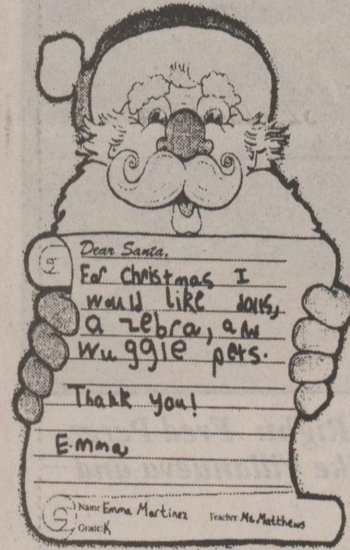 Dear Santa,
For Christmas I
would like dolls,
a zebra, and
wuggle pets.
Thank you!
Emma
Name: Emma Martinez Teacher: Ms. Matthews
Grade: K